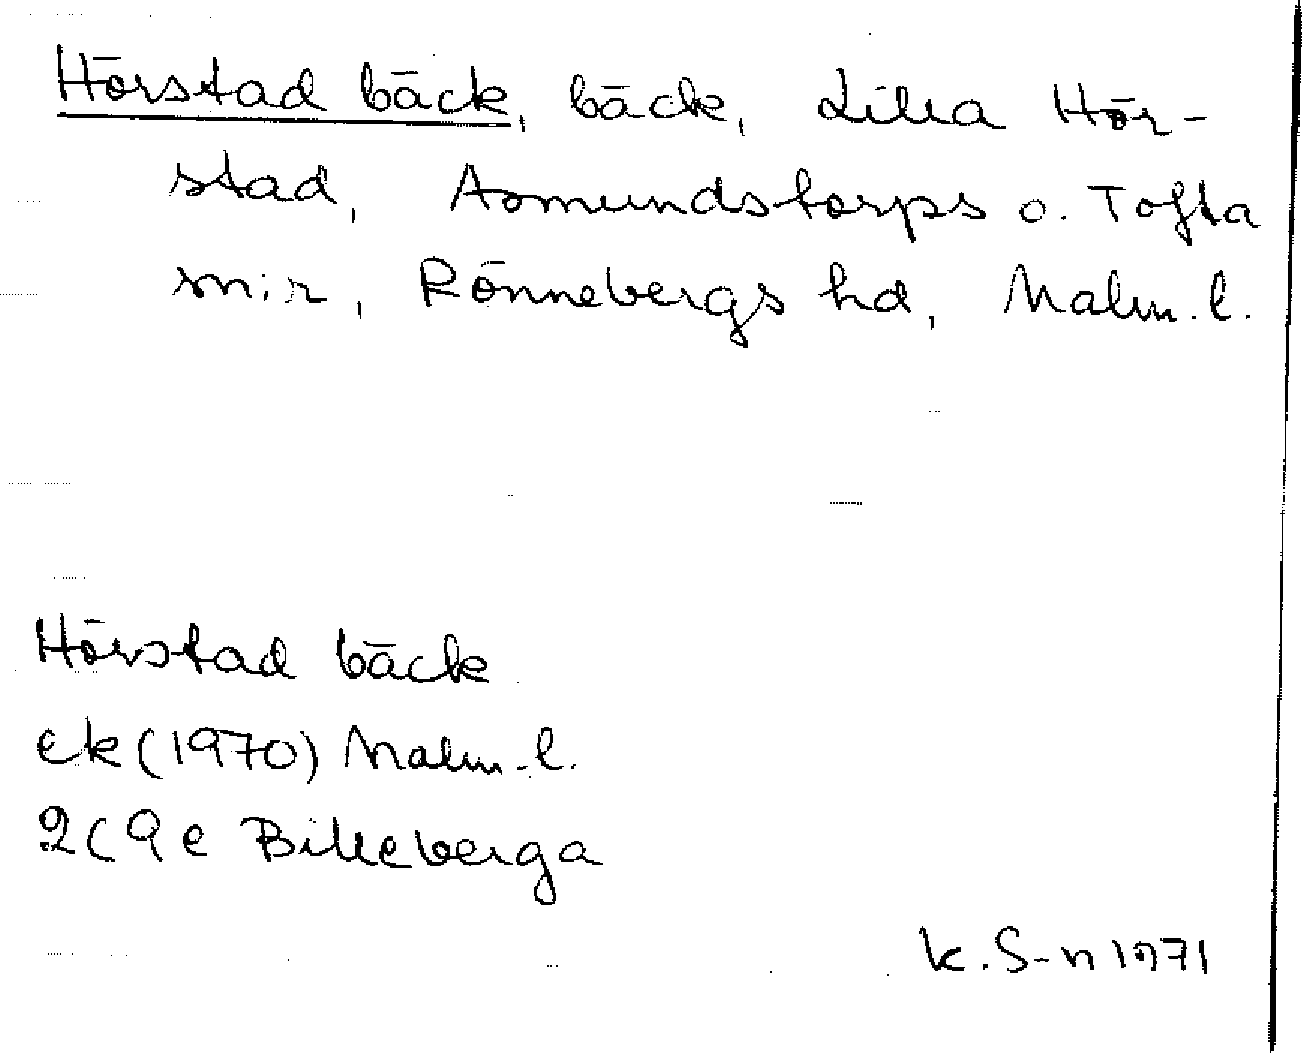 Hörstad bäck, bäck, Lilla Hör-
stad, Asmundstorps o. Tofta
snr, Rönnebergs hd, Malm. l.
Hörstad bäck
Ek (1970) Malm. l.
2C 9e Billeberga
K. S-n 1971